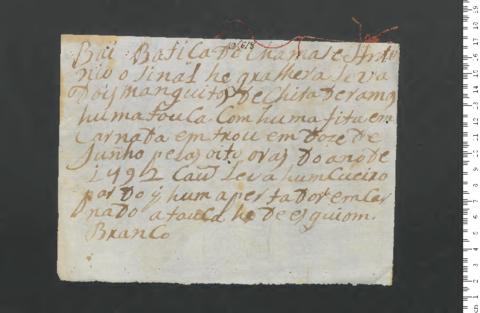 Bai Baticado chamase Anto
nio o sinal he que llevara
doys manguitos de chita de ramos
huma touca Com huma fita en
carnada em trou em doze de
Junho pelas oito oras do ano de
1792 leva hum Cueiro
pardo y hum apertador em Car
nado a touca he de esguiom
Branco